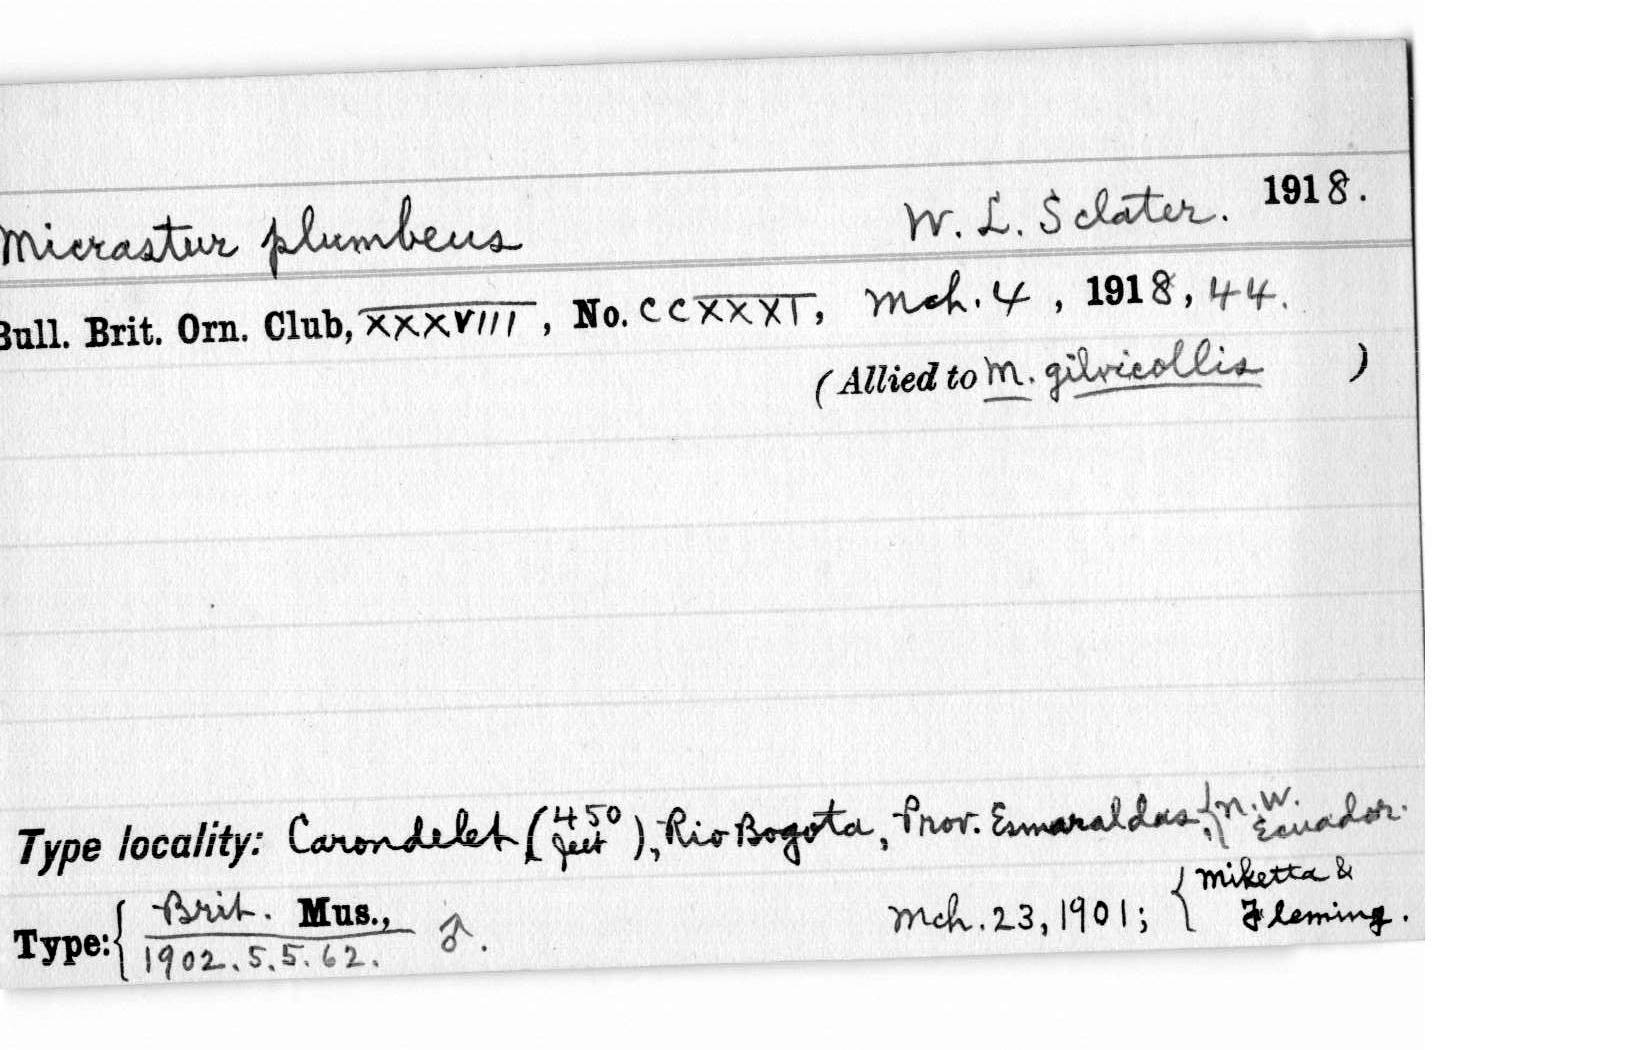 Micrastur plumbeus W. L. Sclater. 1918.
Bull. Brit. Orn. Club, XXXVIII, No. CCXXXI, Mch. 4, 1918, 44.
(Allied to M. gilvicollis )
Type locality: Carondelet (450 feet), Rio Bogota, Prov. Esmaraldas, {N.W. Ecuador.
Type: { Brit. Mus., 1902.5.5.62. ♂. Mch. 23, 1901; { Miketta & Fleming.